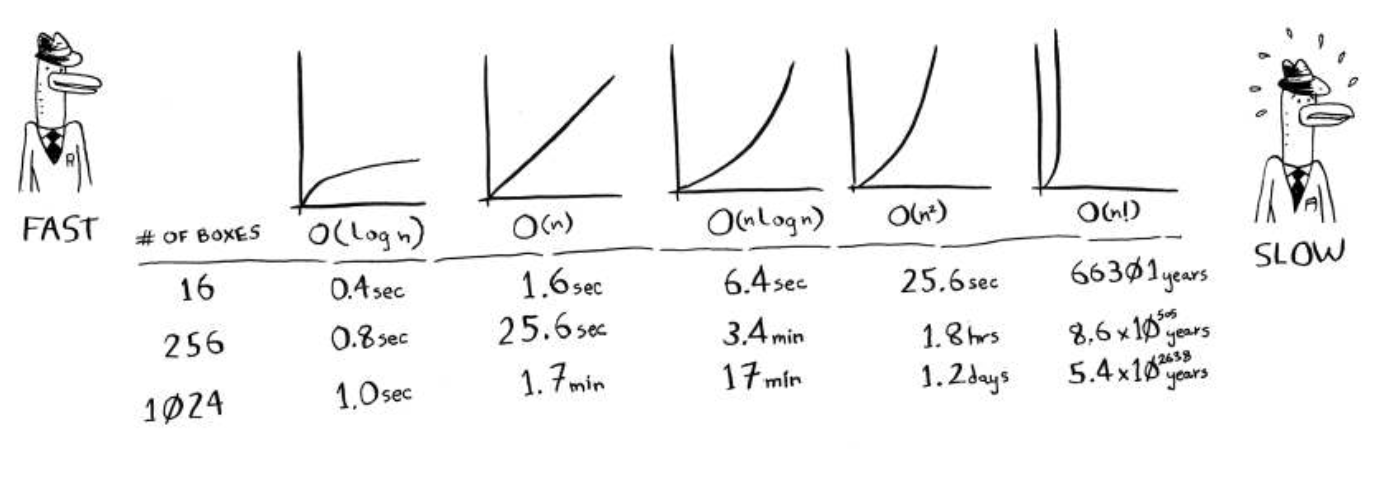 FAST
SLOW
# OF BOXES O(log n) O(n) O(n log n) O(n²) O(n!)
16 0.4sec 1.6sec 6.4sec 25.6sec 66301years
256 0.8sec 25.6sec 3.4min 1.8hrs 8.6x10⁵⁰⁵years
1024 1.0sec 1.7min 17min 1.2days 5.4x10²⁶³⁸years